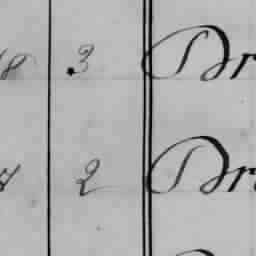 8 3 Dr
2 Dr